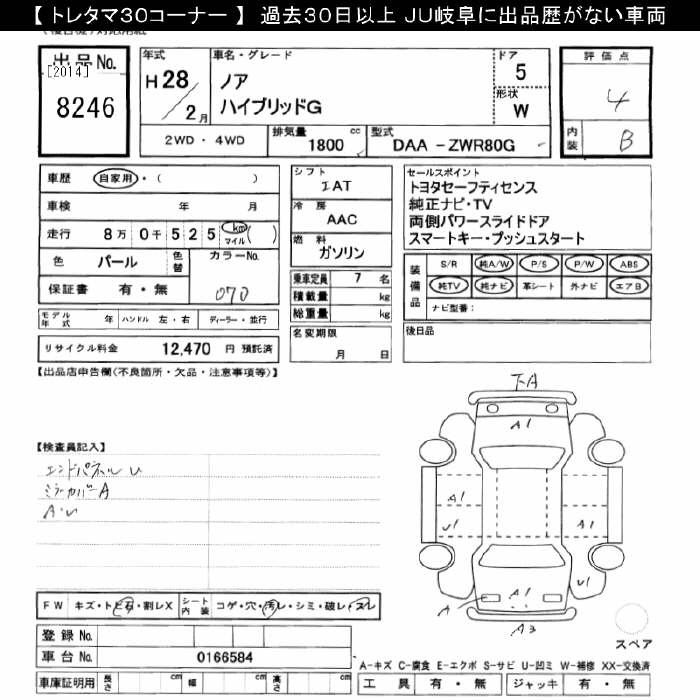 【 トレタマ30コーナー 】 過去30日以上 JU岐阜に出品歴がない車両
出品No.
[2014]
8246
年式
H28/2月
車名・グレード
ノア
ハイブリッドG
ドア
5
形状
W
2WD・4WD
排気量
1800 cc
型式
DAA -ZWR80G
評価点
4
内装
B
車歴
自家用・( )
車検 年 月
走行 8万0千525 km マイル ( )
色 パール 色替 カラーNo.
070
保証書 有・無
モデル年式 年 ハンドル 左・右 ディーラー・並行
リサイクル料金 12,470 円 預託済
シフト
IAT
冷房
AAC
燃料
ガソリン
乗車定員 7 名
積載量 kg
総重量 kg
名変期限
月 日
セールスポイント
トヨタセーフティセンス
純正ナビ・TV
両側パワースライドドア
スマートキー・プッシュスタート
装備品
S/R 純A/W P/S P/W ABS
純TV 純ナビ 革シート 外ナビ エアB
ナビ型番:
後日品
【出品店申告欄(不良箇所・欠品・注意事項等)】
【検査員記入】
エンドパネルU
ミラーカバーA
A・U
下A
A1
A1
U1
A1
A
A1
U1
A3
スペア
FW キズ・トビ石・割レX シート内装 コゲ・穴・汚レ・シミ・破レ・スレ
登録 No.
車台 No. 0166584
車庫証明用 長さ cm 幅 cm 高さ cm
A-キズ C-腐食 E-エクボ S-サビ U-凹ミ W-補修 XX-交換済
工具 有・無 ジャッキ 有・無